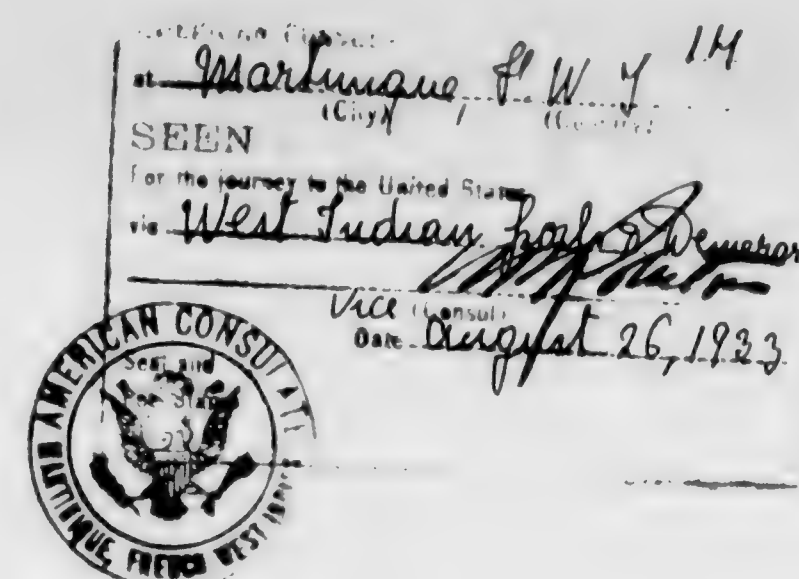 American Consul
at Martinique, F W I 14
(City) (Country)
SEEN
For the journey to the United States
via West Indian Ports & Demerar
Vice (Consul)
Date August 26, 1933
AMERICAN CONSULATE
Seal and
MARTINIQUE, FRENCH WEST INDIES